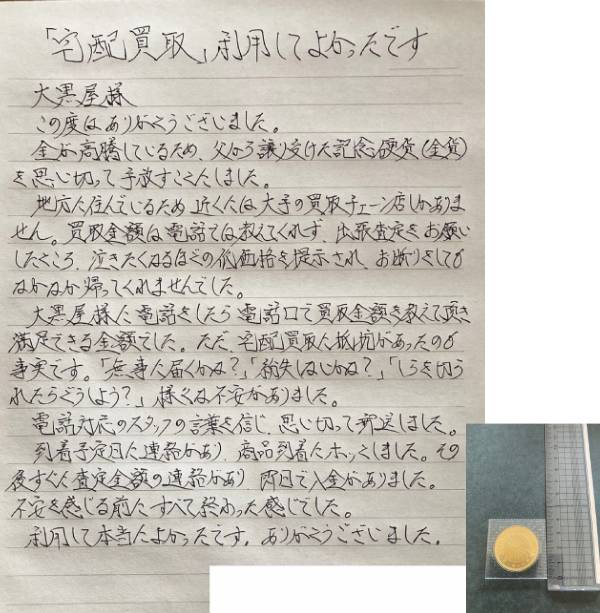 「宅配買取」利用してよかったです
大黒屋様
この度はありがとうございました。
金が高騰しているため、父から譲り受けた記念硬貨(金貨)
を思い切って手放すことにしました。
地方に住んでいるため近くには大手の買取チェーン店しかありま
せん。買取金額は電話では教えてくれず、出張査定をお願い
したところ、泣きたくなるほどの低価格を提示され、お断りをしても
なかなか帰ってくれませんでした。
大黒屋様に電話をしたら電話口で買取金額を教えて頂き
満足できる金額でした。ただ、宅配買取に抵抗があったのが
事実です。「無事に届くかな?」「紛失しないかな?」「しらを切ら
れたらどうしよう?」様々な不安がありました。
電話対応のスタッフの言葉を信じ、思い切って郵送しました。
到着予定日に連絡があり、商品到着にホッとしました。その
後すぐに査定金額の連絡があり 即日で入金がありました。
不安を感じる前にすべて終わった感じでした。
利用して本当によかったです。ありがとうございました。